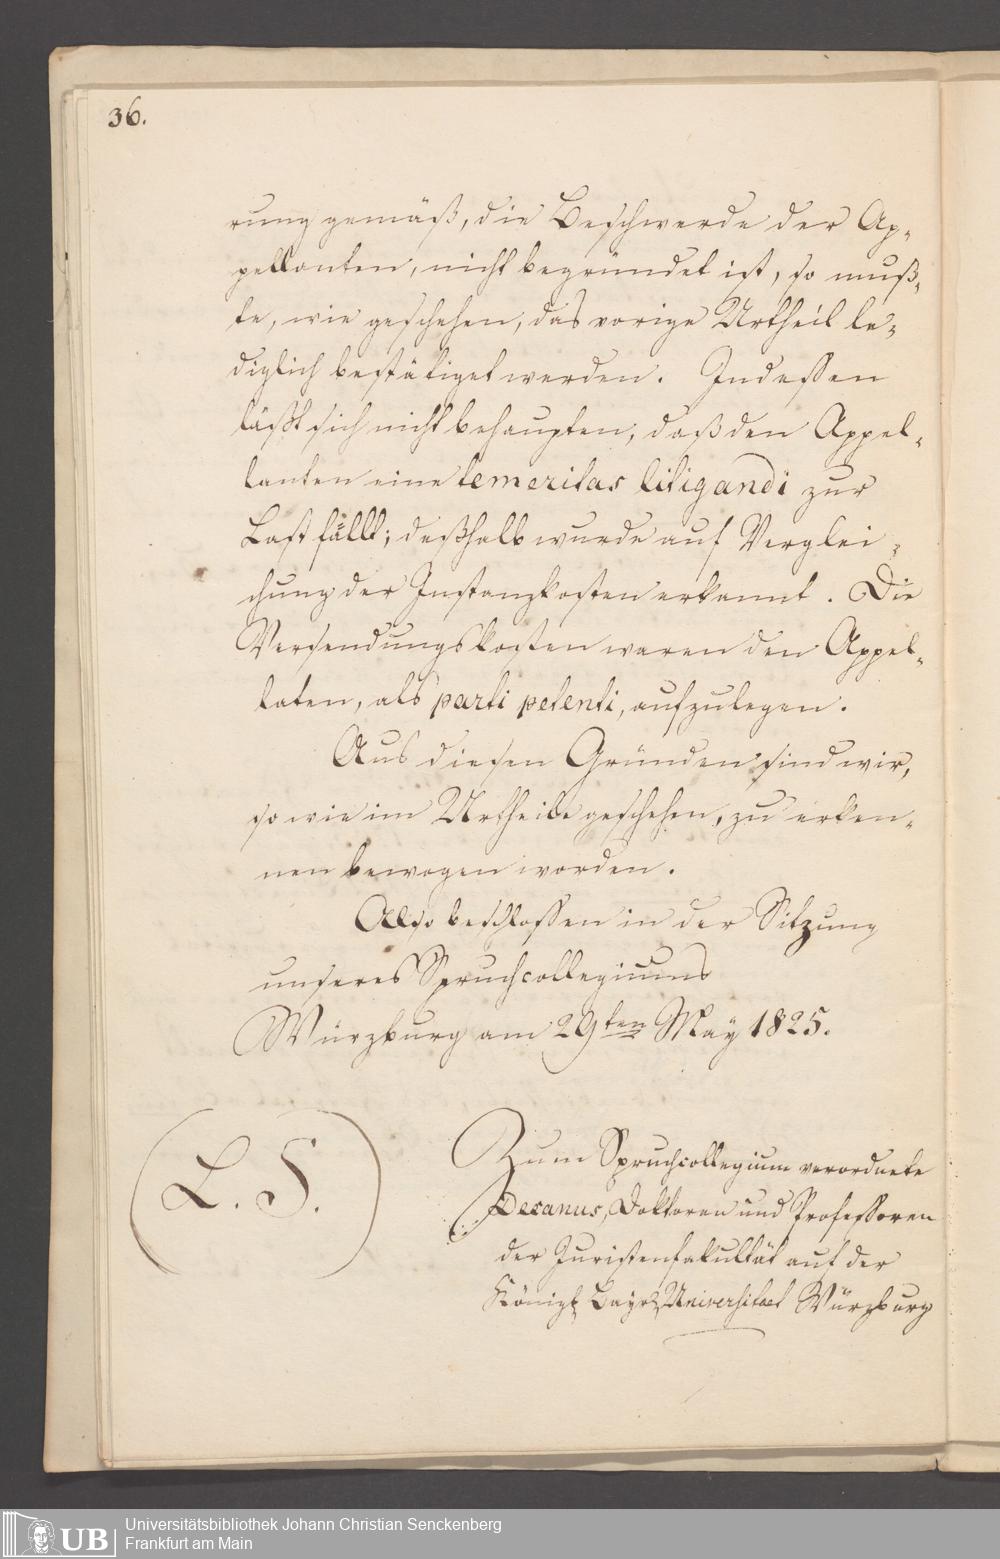 36.
rung gemäß, die Beschwerde der Ap-
pellanten, nicht begründet ist, so muß-
te, wie geschehen, das vorige Urtheil le-
diglich bestätiget werden. Indessen
läßt sich nicht behaupten, daß den Appel-
lanten eine temeritas litigandi zur
Last fällt; deßhalb wurde auf Verglei-
chung der Instanzkosten erkannt. Die
Versendungskosten waren den Appel-
laten, als parti petenti, aufzulegen.
Aus diesen Gründen sind wir,
so wie im Urtheile geschehen, zu erken-
nen bewogen worden.
Also beschlossen in der Sitzung
unseres Spruchcollegiums
Würzburg am 29ten May 1825.
(L. S.)
Zum Spruchcollegium verordnete
Decanus, Doktoren und Professoren
der Juristenfakultät auf der
Königl. Bayr. Universitaet Würzburg
UB
Universitätsbibliothek Johann Christian Senckenberg
Frankfurt am Main